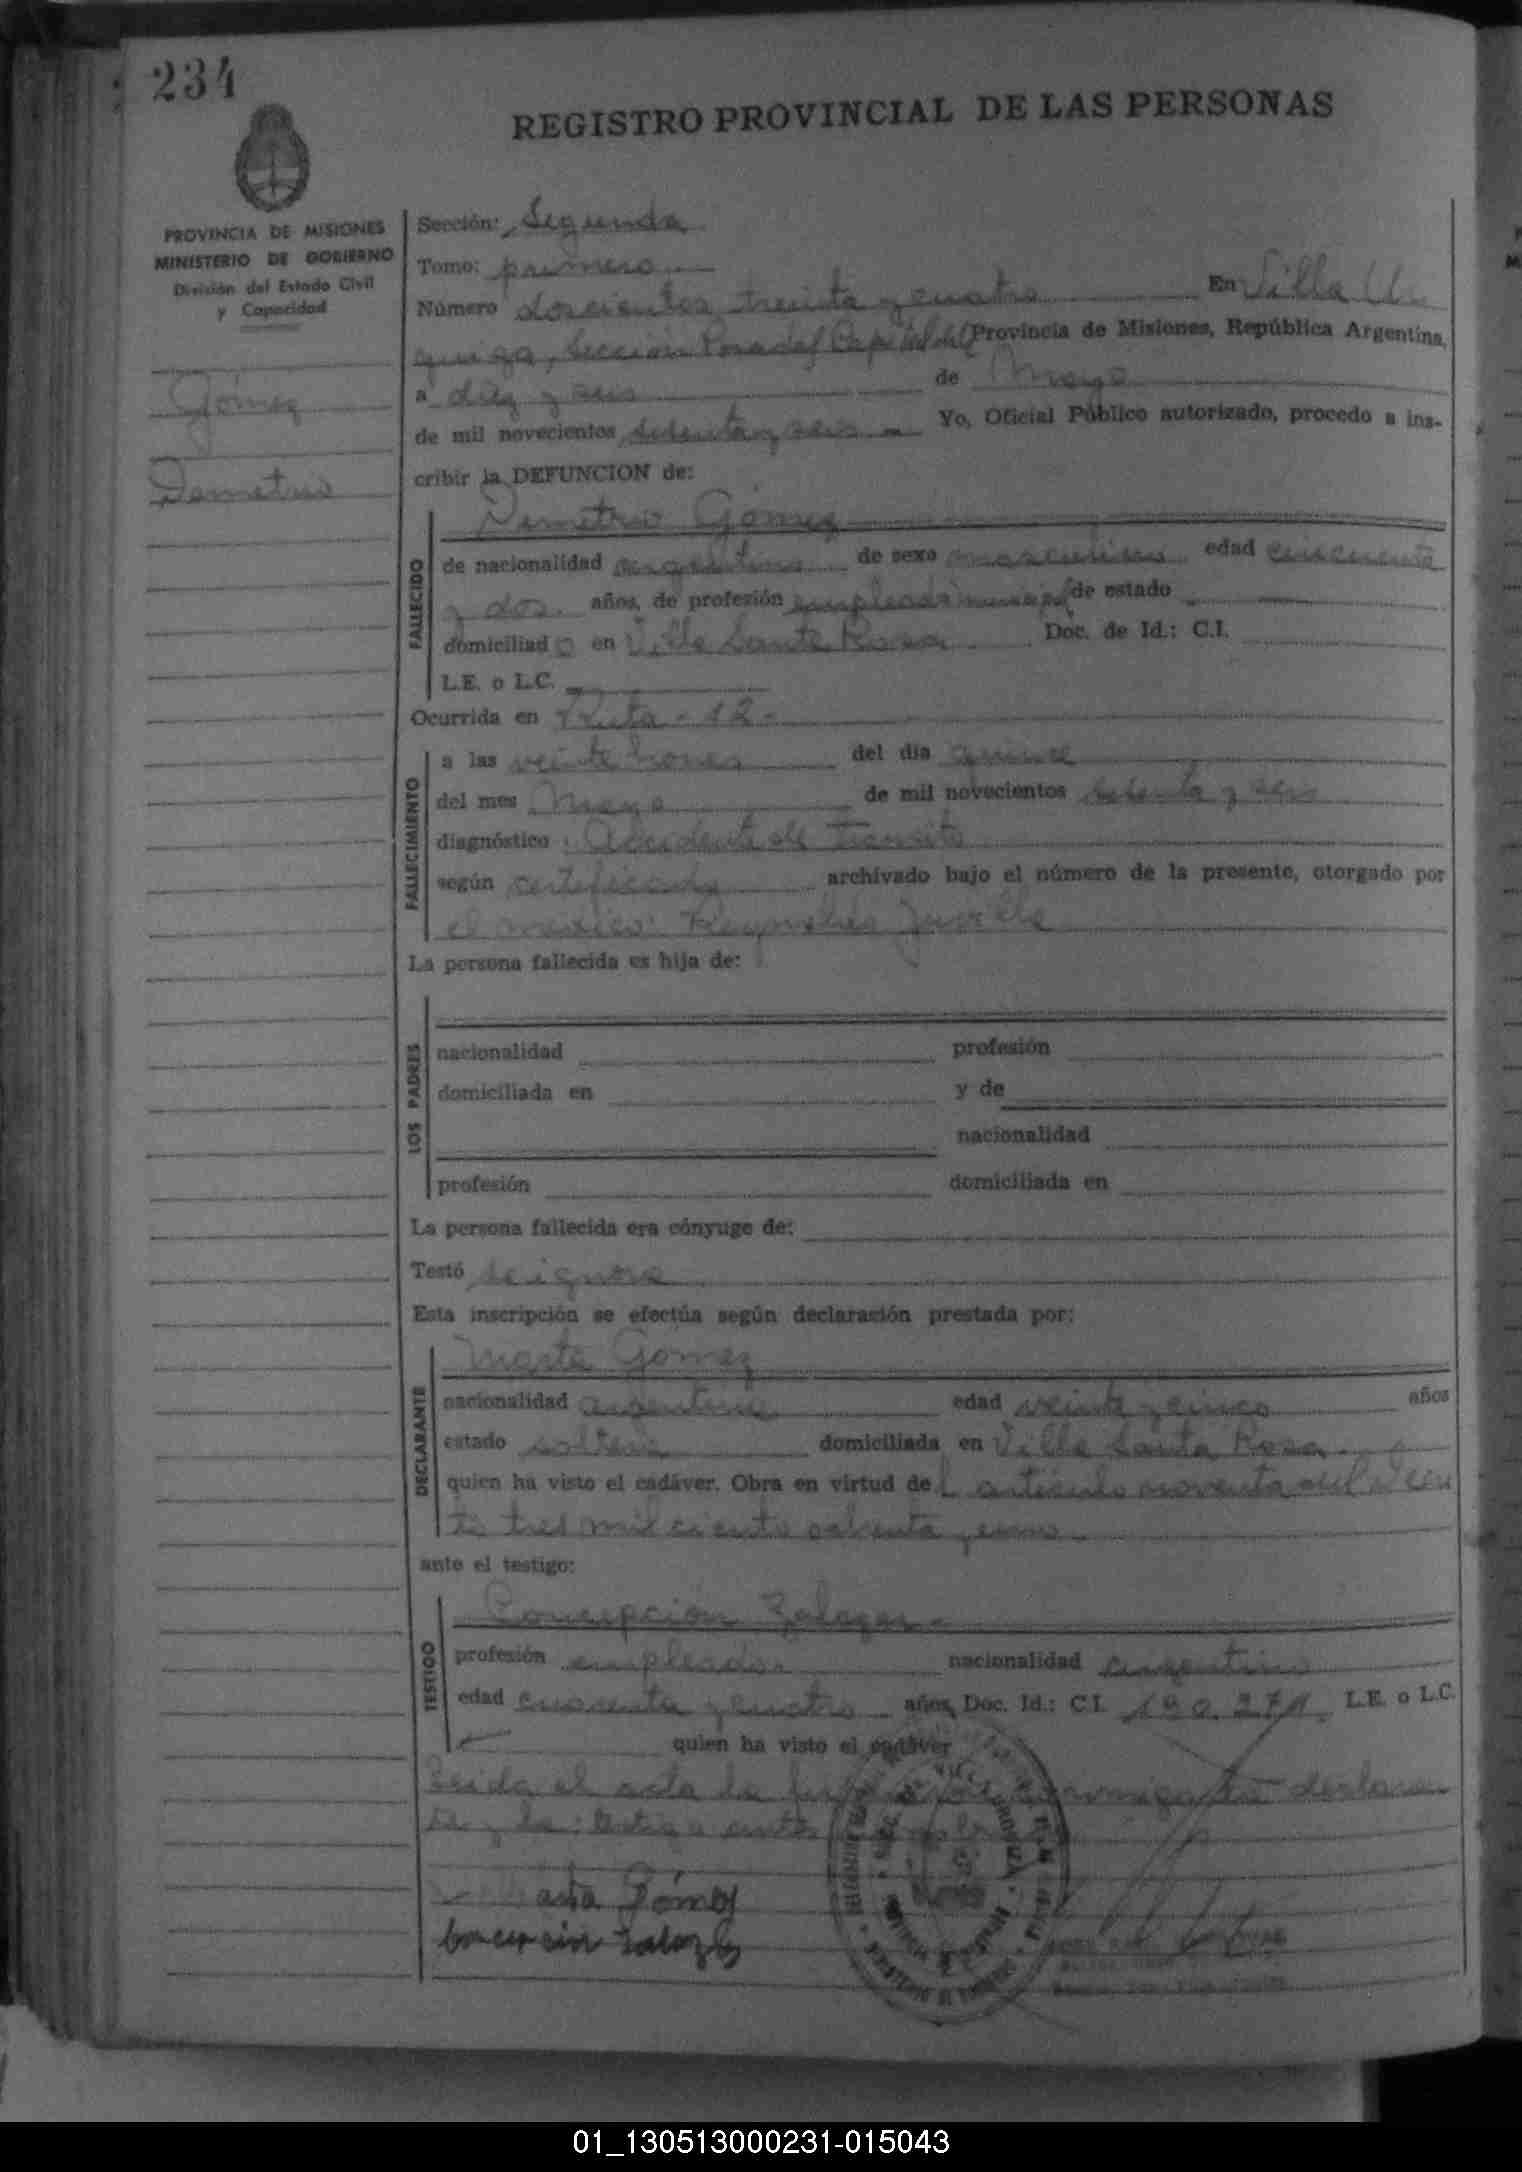 234
REGISTRO PROVINCIAL DE LAS PERSONAS
PROVINCIA DE MISIONES
MINISTERIO DE GOBIERNO
División del Estado Civil
y Capacidad
Gómez
Demetrio
Sección: Segunda
Tomo: primero
Número doscientos treinta y cuatro En Villa Ur
quiza, Sección Posadas Capital de Provincia de Misiones, República Argentina,
a diez y seis de Mayo
de mil novecientos setenta y seis Yo, Oficial Público autorizado, procedo a ins-
cribir la DEFUNCION de:
Demetrio Gómez
FALLECIDO
de nacionalidad argentina de sexo masculino edad cincuenta
y dos. años, de profesión empleado municipal de estado
domiciliado en Villa Santa Rosa Doc. de Id.: C.I.
L.E. o L.C.
Ocurrida en Ruta - 12 -
FALLECIMIENTO
a las veinte horas del día quince
del mes Mayo de mil novecientos setenta y seis
diagnóstico Accidente de Transito
según certificado archivado bajo el número de la presente, otorgado por
el medico:
La persona fallecida es hija de:
LOS PADRES
nacionalidad profesión
domiciliada en y de
nacionalidad
profesión domiciliada en
La persona fallecida era cónyuge de:
Testó se ignora
Esta inscripción se efectúa según declaración prestada por:
Marta Gomez
DECLARANTE
nacionalidad argentina edad veinte y cinco años
estado soltera domiciliada en Villa Santa Rosa
quien ha visto el cadáver. Obra en virtud del articulo noventa
tres mil ciento ochenta y uno
ante el testigo:
Concepción Zalazar
TESTIGO
profesión empleado nacionalidad argentino
edad cuarenta y cuatro años, Doc. Id.: C.I. L.E. o L.C.
quien ha visto el cadáver
Leida el acta la
Marta Gómez
Concepcion Zalazar
01_130513000231-015043